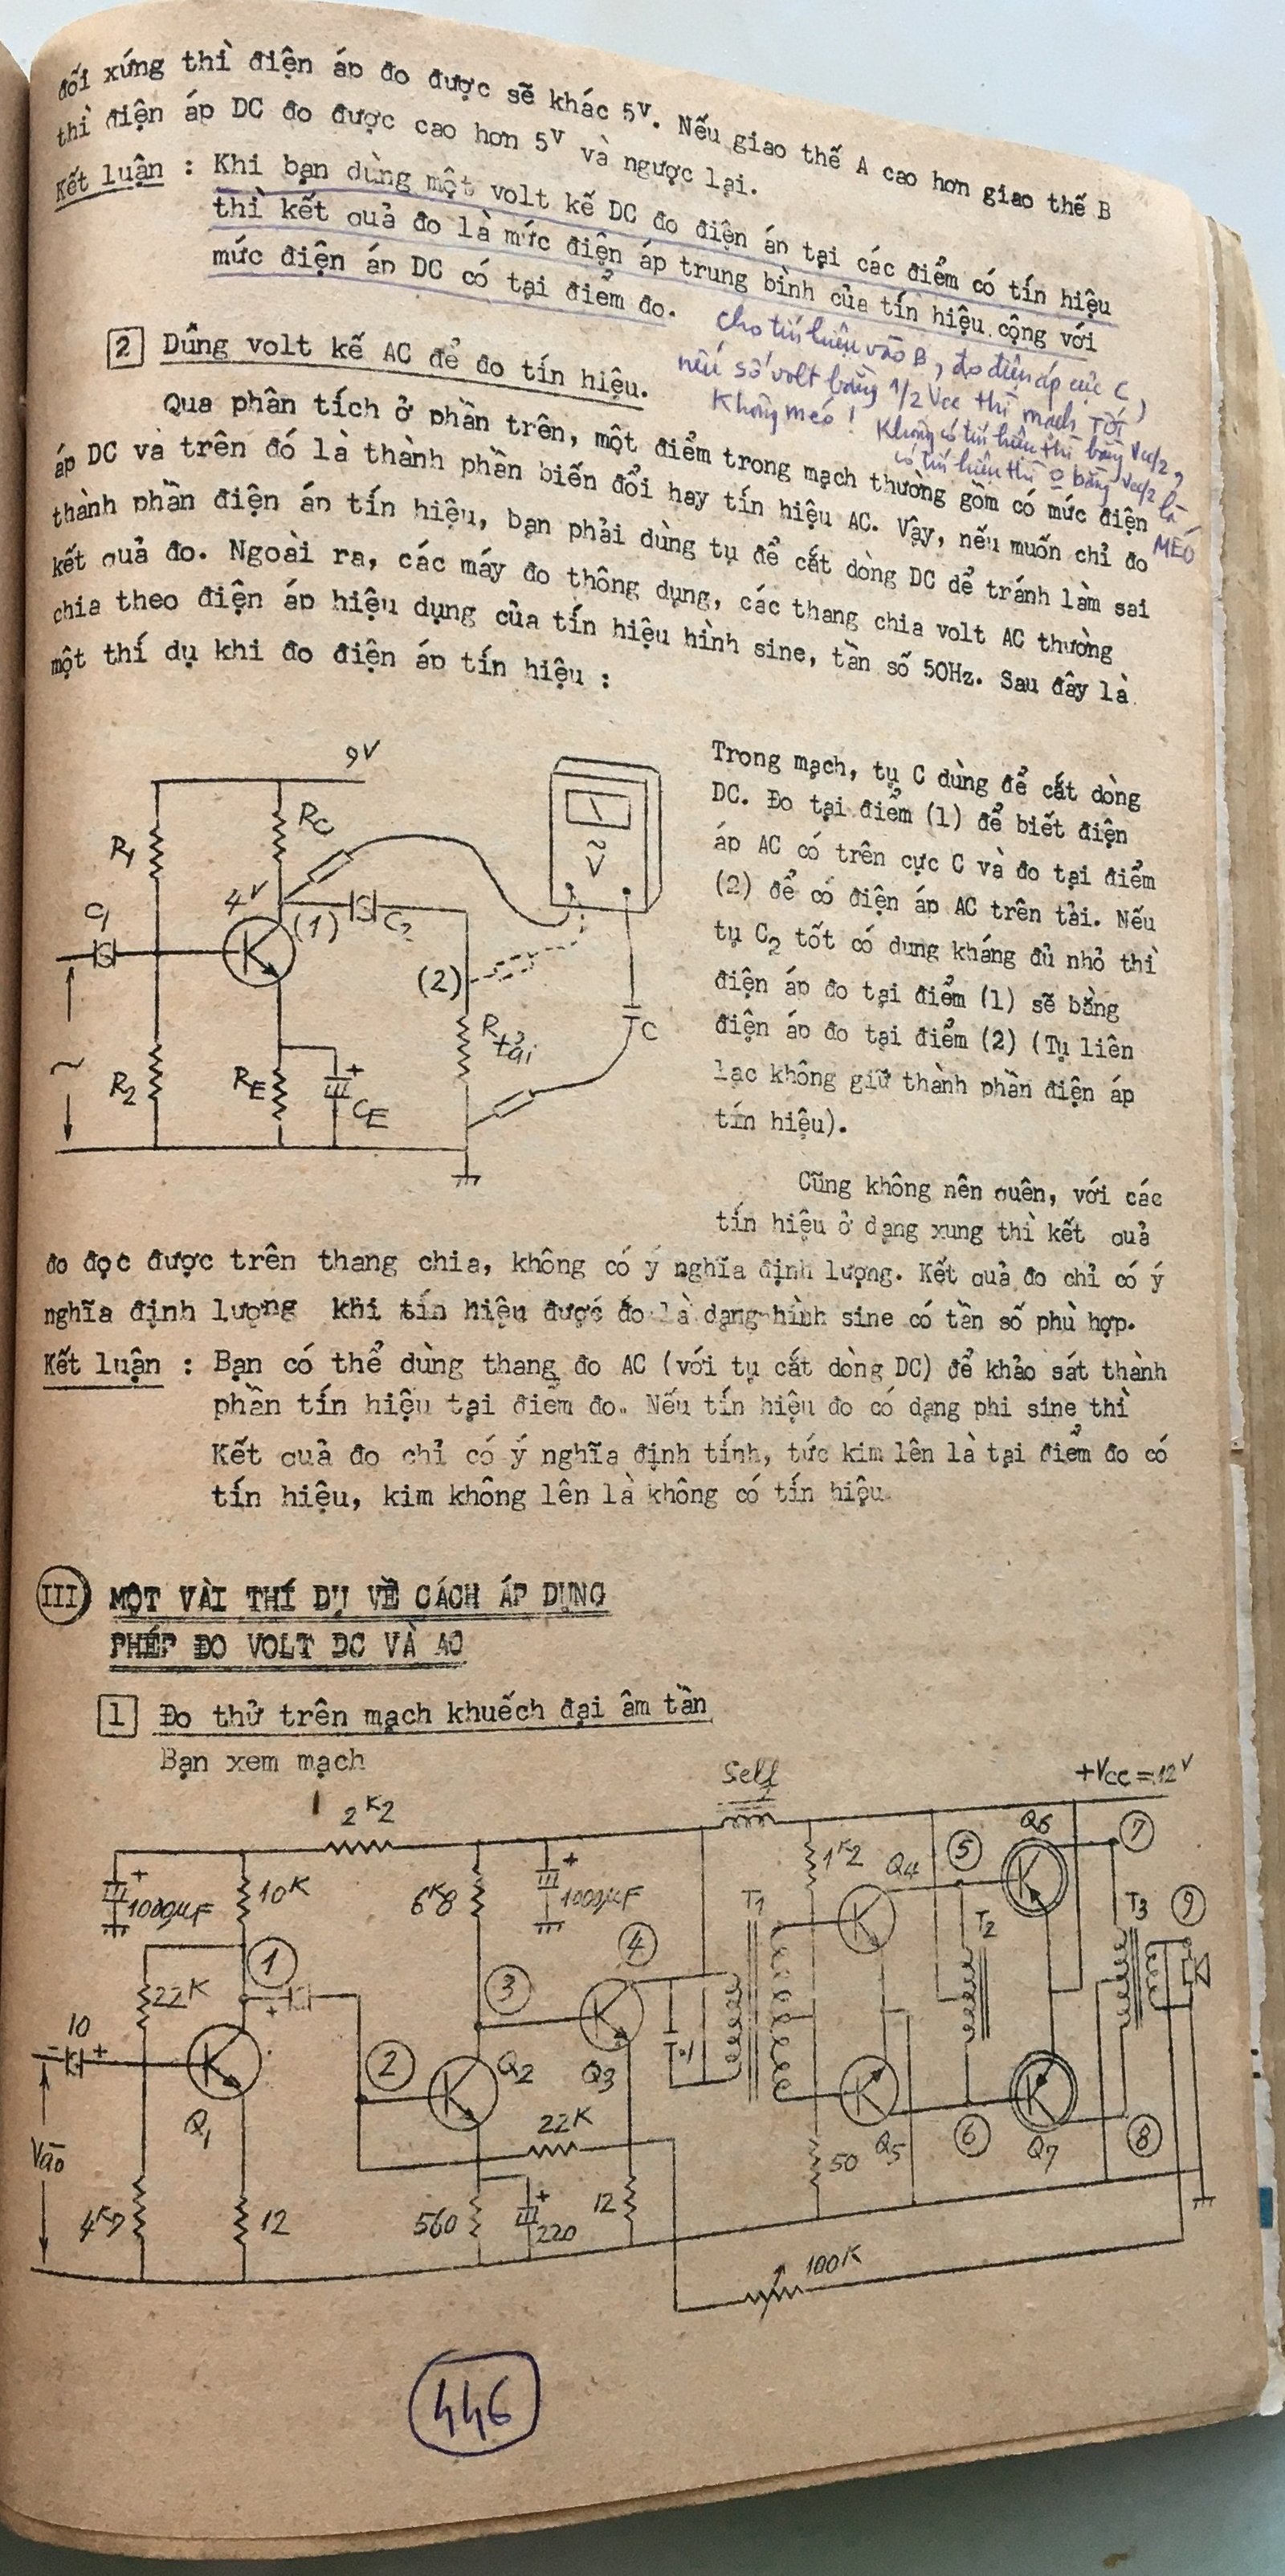 đối xứng thì điện áp đo được sẽ khác 5V. Nếu giao thế A cao hơn giao thế B
thì điện áp DC đo được cao hơn 5V và ngược lại.
Kết luận : Khi bạn dùng một volt kế DC đo điện áp tại các điểm có tín hiệu
thì kết quả đo là mức điện áp trung bình của tín hiệu cộng với
mức điện áp DC có tại điểm đo.
cho tín hiệu vào B, đo điện áp cực C,
nếu số volt bằng 1/2 Vcc thì mạch TỐT
Không méo ! Không có tín hiệu thì bằng Vcc/2,
có tín hiệu thì o bằng Vcc/2 là
MÉO
2 Dùng volt kế AC để đo tín hiệu.
Qua phân tích ở phần trên, một điểm trong mạch thường gồm có mức điện
áp DC và trên đó là thành phần biến đổi hay tín hiệu AC. Vậy, nếu muốn chỉ đo
thành phần điện áp tín hiệu, bạn phải dùng tụ để cắt dòng DC để tránh làm sai
kết quả đo. Ngoài ra, các máy đo thông dụng, các thang chia volt AC thường
chia theo điện áp hiệu dụng của tín hiệu hình sine, tần số 50Hz. Sau đây là
một thí dụ khi đo điện áp tín hiệu :
9V
R1
RC
4V
C1
(1)
C2
~
V
(2)
R tải
C
~
R2
RE
+
CE
Trong mạch, tụ C dùng để cắt dòng
DC. Đo tại điểm (1) để biết điện
áp AC có trên cực C và đo tại điểm
(2) để có điện áp AC trên tải. Nếu
tụ C2 tốt có dung kháng đủ nhỏ thì
điện áp đo tại điểm (1) sẽ bằng
điện áp đo tại điểm (2) (Tụ liên
lạc không giữ thành phần điện áp
tín hiệu).
Cũng không nên quên, với các
tín hiệu ở dạng xung thì kết quả
đo đọc được trên thang chia, không có ý nghĩa định lượng. Kết quả đo chỉ có ý
nghĩa định lượng khi tín hiệu được đo là dạng hình sine có tần số phù hợp.
Kết luận : Bạn có thể dùng thang đo AC (với tụ cắt dòng DC) để khảo sát thành
phần tín hiệu tại điểm đo. Nếu tín hiệu đo có dạng phi sine thì
Kết quả đo chỉ có ý nghĩa định tính, tức kim lên là tại điểm đo có
tín hiệu, kim không lên là không có tín hiệu.
III MỘT VÀI THÍ DỤ VỀ CÁCH ÁP DỤNG
PHÉP ĐO VOLT DC VÀ AC
1 Đo thử trên mạch khuếch đại âm tần
Bạn xem mạch
Self
+Vcc = 12V
2K2
+
1000µF
10K
6K8
+
1000µF
1K2
Q4
5
Q6
7
T1
T2
T3
9
4
1
3
22K
+
10
- +
2
Q1
Q2
Q3
.1
22K
Q5
6
Q7
8
Vào
12
560
+
220
12
50
100K
446